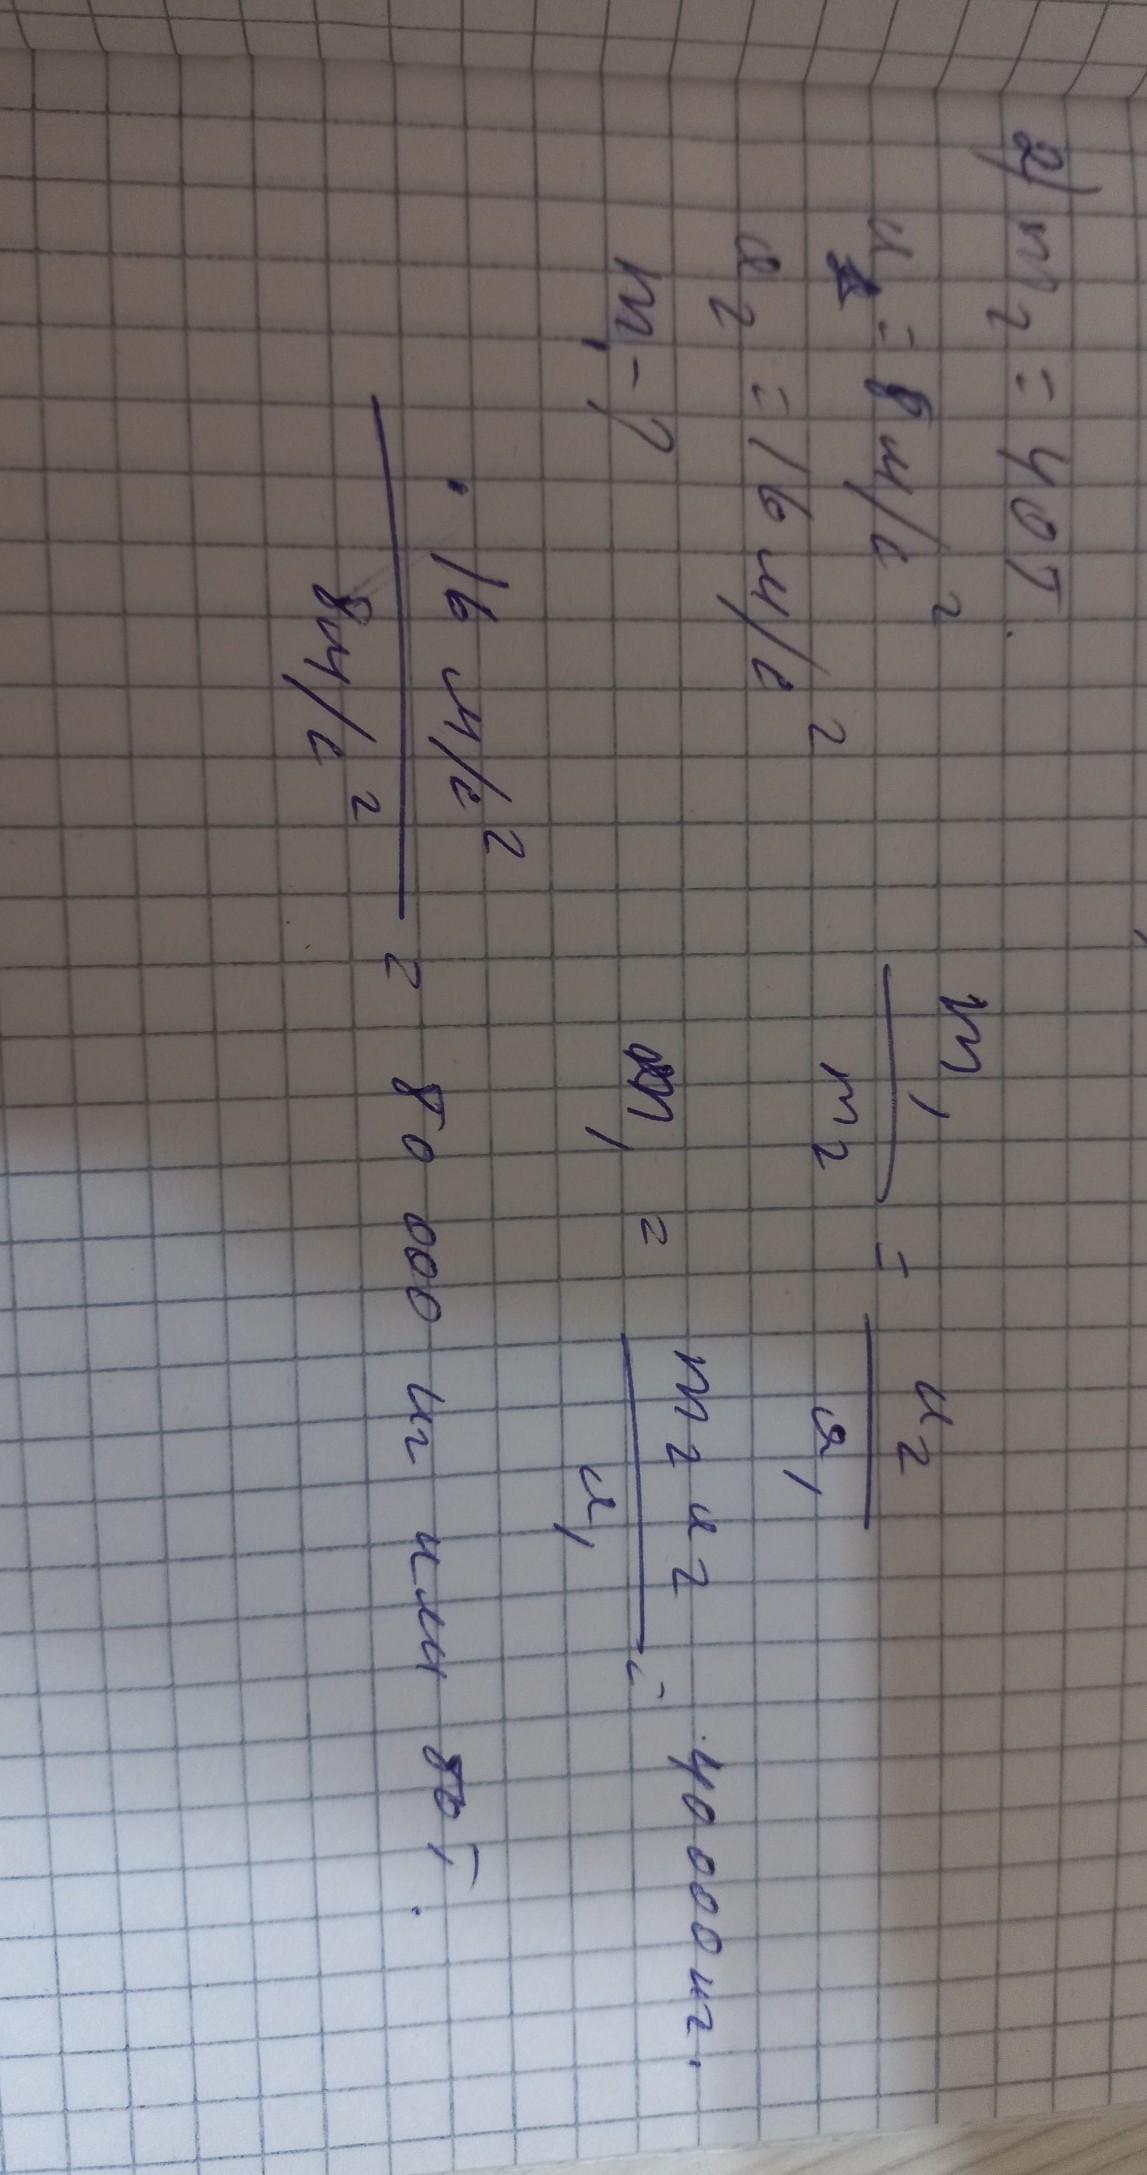 2) m₂ = 40т.
a₁ = 8 м/с²
a₂ = 16 м/с²
m₁ - ?
m₁/m₂ = a₂/a₁
m₁ = m₂a₂/a₁ = 40000 кг.
· 16 м/с² / 8 м/с² = 80 000 кг или 80 т.